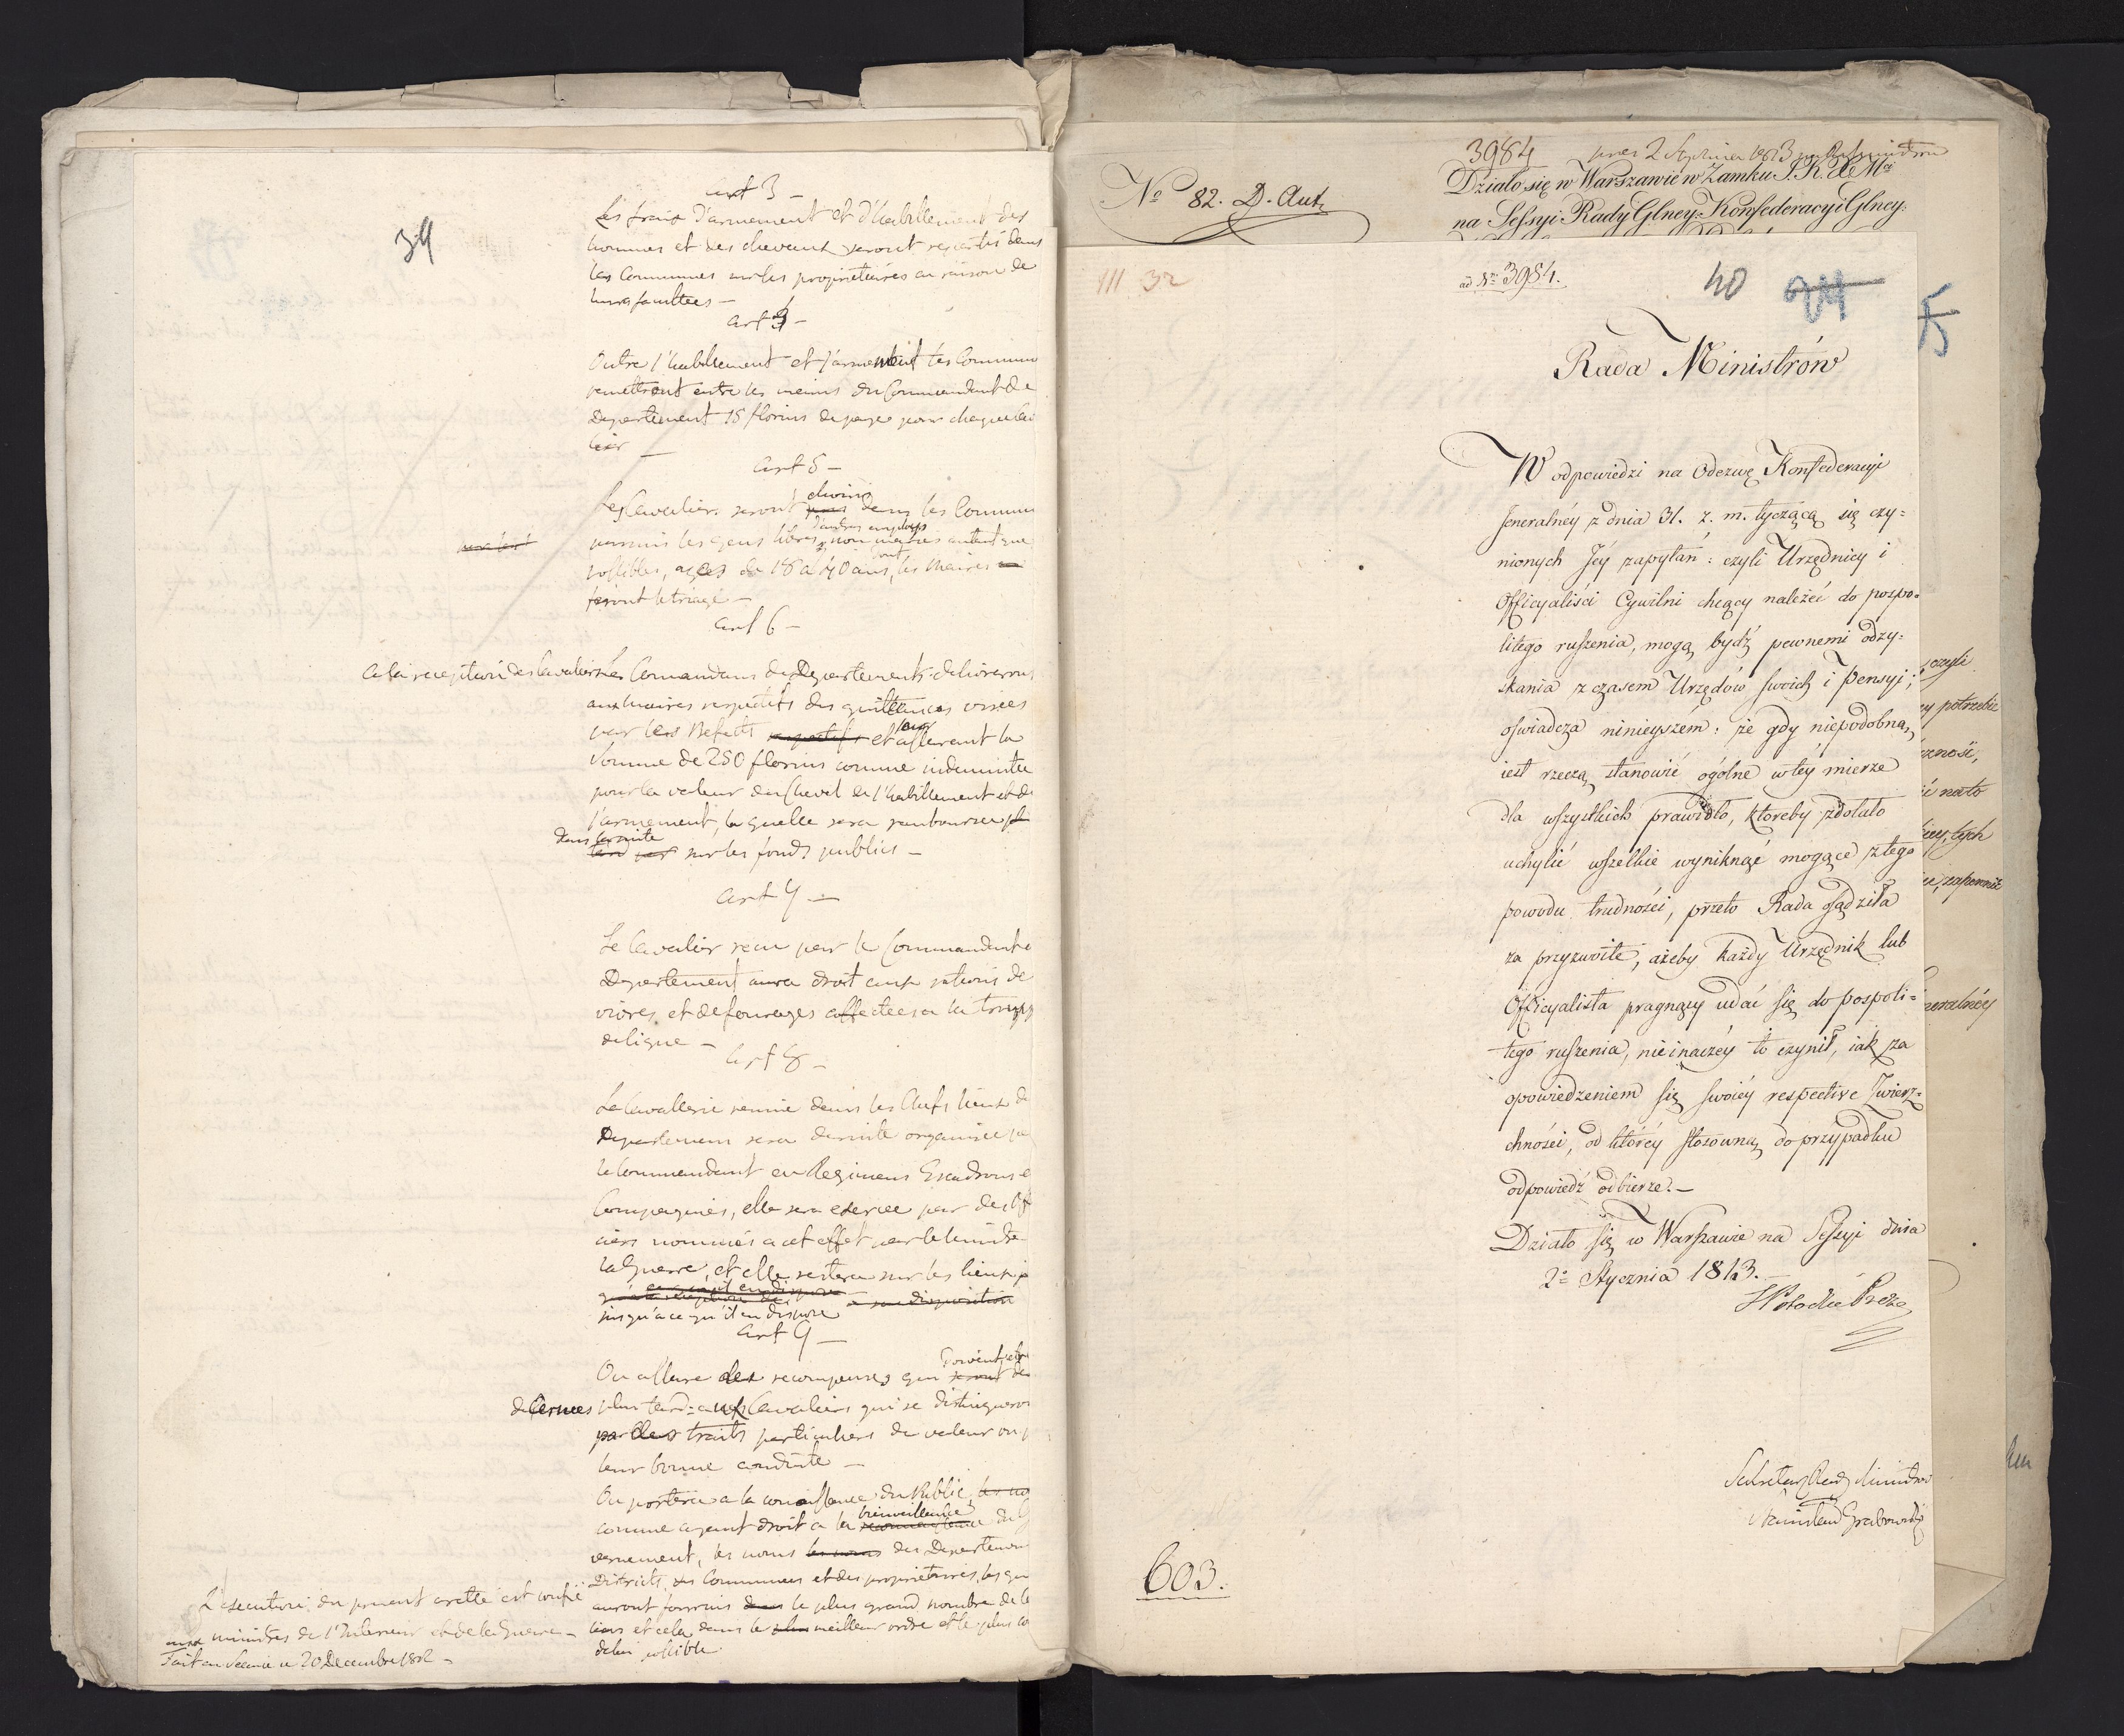 39
art 3 –
Les frais d'armement et d'habillement des
hommes et des chevaux seront repartis dans
les Communes sur les propriétaires en raison de
leurs facultées –
art 4 –
Outre l'habillement et l'armement les Commun
remettront entre les mains du Commandant de
Departement 18 florins de paye pour chaque Cava
lier –
art 5 –
choisis
Les Cavaliers seront pris dans les Commun
d'autres employs
parmis les gens libres, non mariés autant que
possibles, ages de 18 a 40 ans, les Maires en
feront le triage –
art 6 –
A la reception des Cavaliers les Comandans de Departements delivrerons
aux maires respectifs des quittances visées
par les Prefets respectifs et assurant la
Somme de 250 florins comme indemnitée
pour la valeur du Cheval de l'habillement et de
l'armement, la quelle sera remboursée pl
dans la suite
tard par sur les fonds publics –
art 7 –
Le Cavalier recu par le Commandant
Departement aura droit aux rations de
vivres et de fourages affectées a la troupe
de ligne –
art 8 –
La Cavallerie reunie dans les Chefs lieux de
Departemens sera de suite organisée pa
le Commandant en Regimens Escadrons e
Compagnies, elle sera exercée par des Off
ciers nommés a cet effet par le Ministre
la Guerre, et elle restera sur les lieux
a sa disposition
jusqu'a ce qu'il en dispose
art 9 –
On assure des recompenses qui seront
decernées plus tard aux Cavaliers qui se distingueron
par des traits particuliers de valeur ou p
leur bonne conduite –
On portera a la conaissance du Public les no
bienveillance
comme ayant droit a la reconnaissance du G
vernement, les noms les noms des Departemen
Districts, des Communes et des proprietaires, les qu
auront fournis dans le plus grand nombre de C
liers et cela dans le plus meilleur ordre et le plus co
delai possible
L'execution du present aretté est confié
aux ministres de l'Interieur et de la Guerre –
Fait en Seance ce 20 Decembre 1812 –
No 82. D. Aut.
3984
pres 2 Stycznia 1813
Działo się w Warszawie w Zamku J. K. Mci
na Sessyi Rady Glney: Konfederacyi Glney:
III 32
ad No 3984.
40
24
5
Rada Ministrów
W odpowiedzi na Odezwę Konfederacyi
Jeneralnéy z dnia 31. z. m. tyczącą się czy=
nionych Jéy zapytań: czyli Urzędnicy i
Officyaliści Cywilni chcący należéć do pospo=
litego ruszenia, mogą bydź pewnemi odzy=
skania z czasem Urzędów swoich i Pensyi;
oświadcza ninieyszém: że gdy niepodobną
iest rzeczą stanowić ogólne w téy mierze
dla wszystkich prawidło, któreby zdołało
uchylić wszelkie wyniknąć mogące z tego
powodu trudności, przeto Rada osądziła
za przyzwoite, ażeby każdy Urzędnik lub
Officyalista pragnący udać się do pospoli=
tego ruszenia, nieinaczéy to czynił, iak za
opowiedzeniem się swoiéy respective Zwierz=
chności, od któréy stosowną do przypadku
odpowiedź odbierze. –
Działo się w Warszawie na Sessyi dnia
2o Stycznia 1813.
S Potocki Prezes
Sekretarz Rady Ministrow
Stanisław Grabowski
603.
czyli
potrzebie
czność,
nato
tych
zapewnić
neralnéy